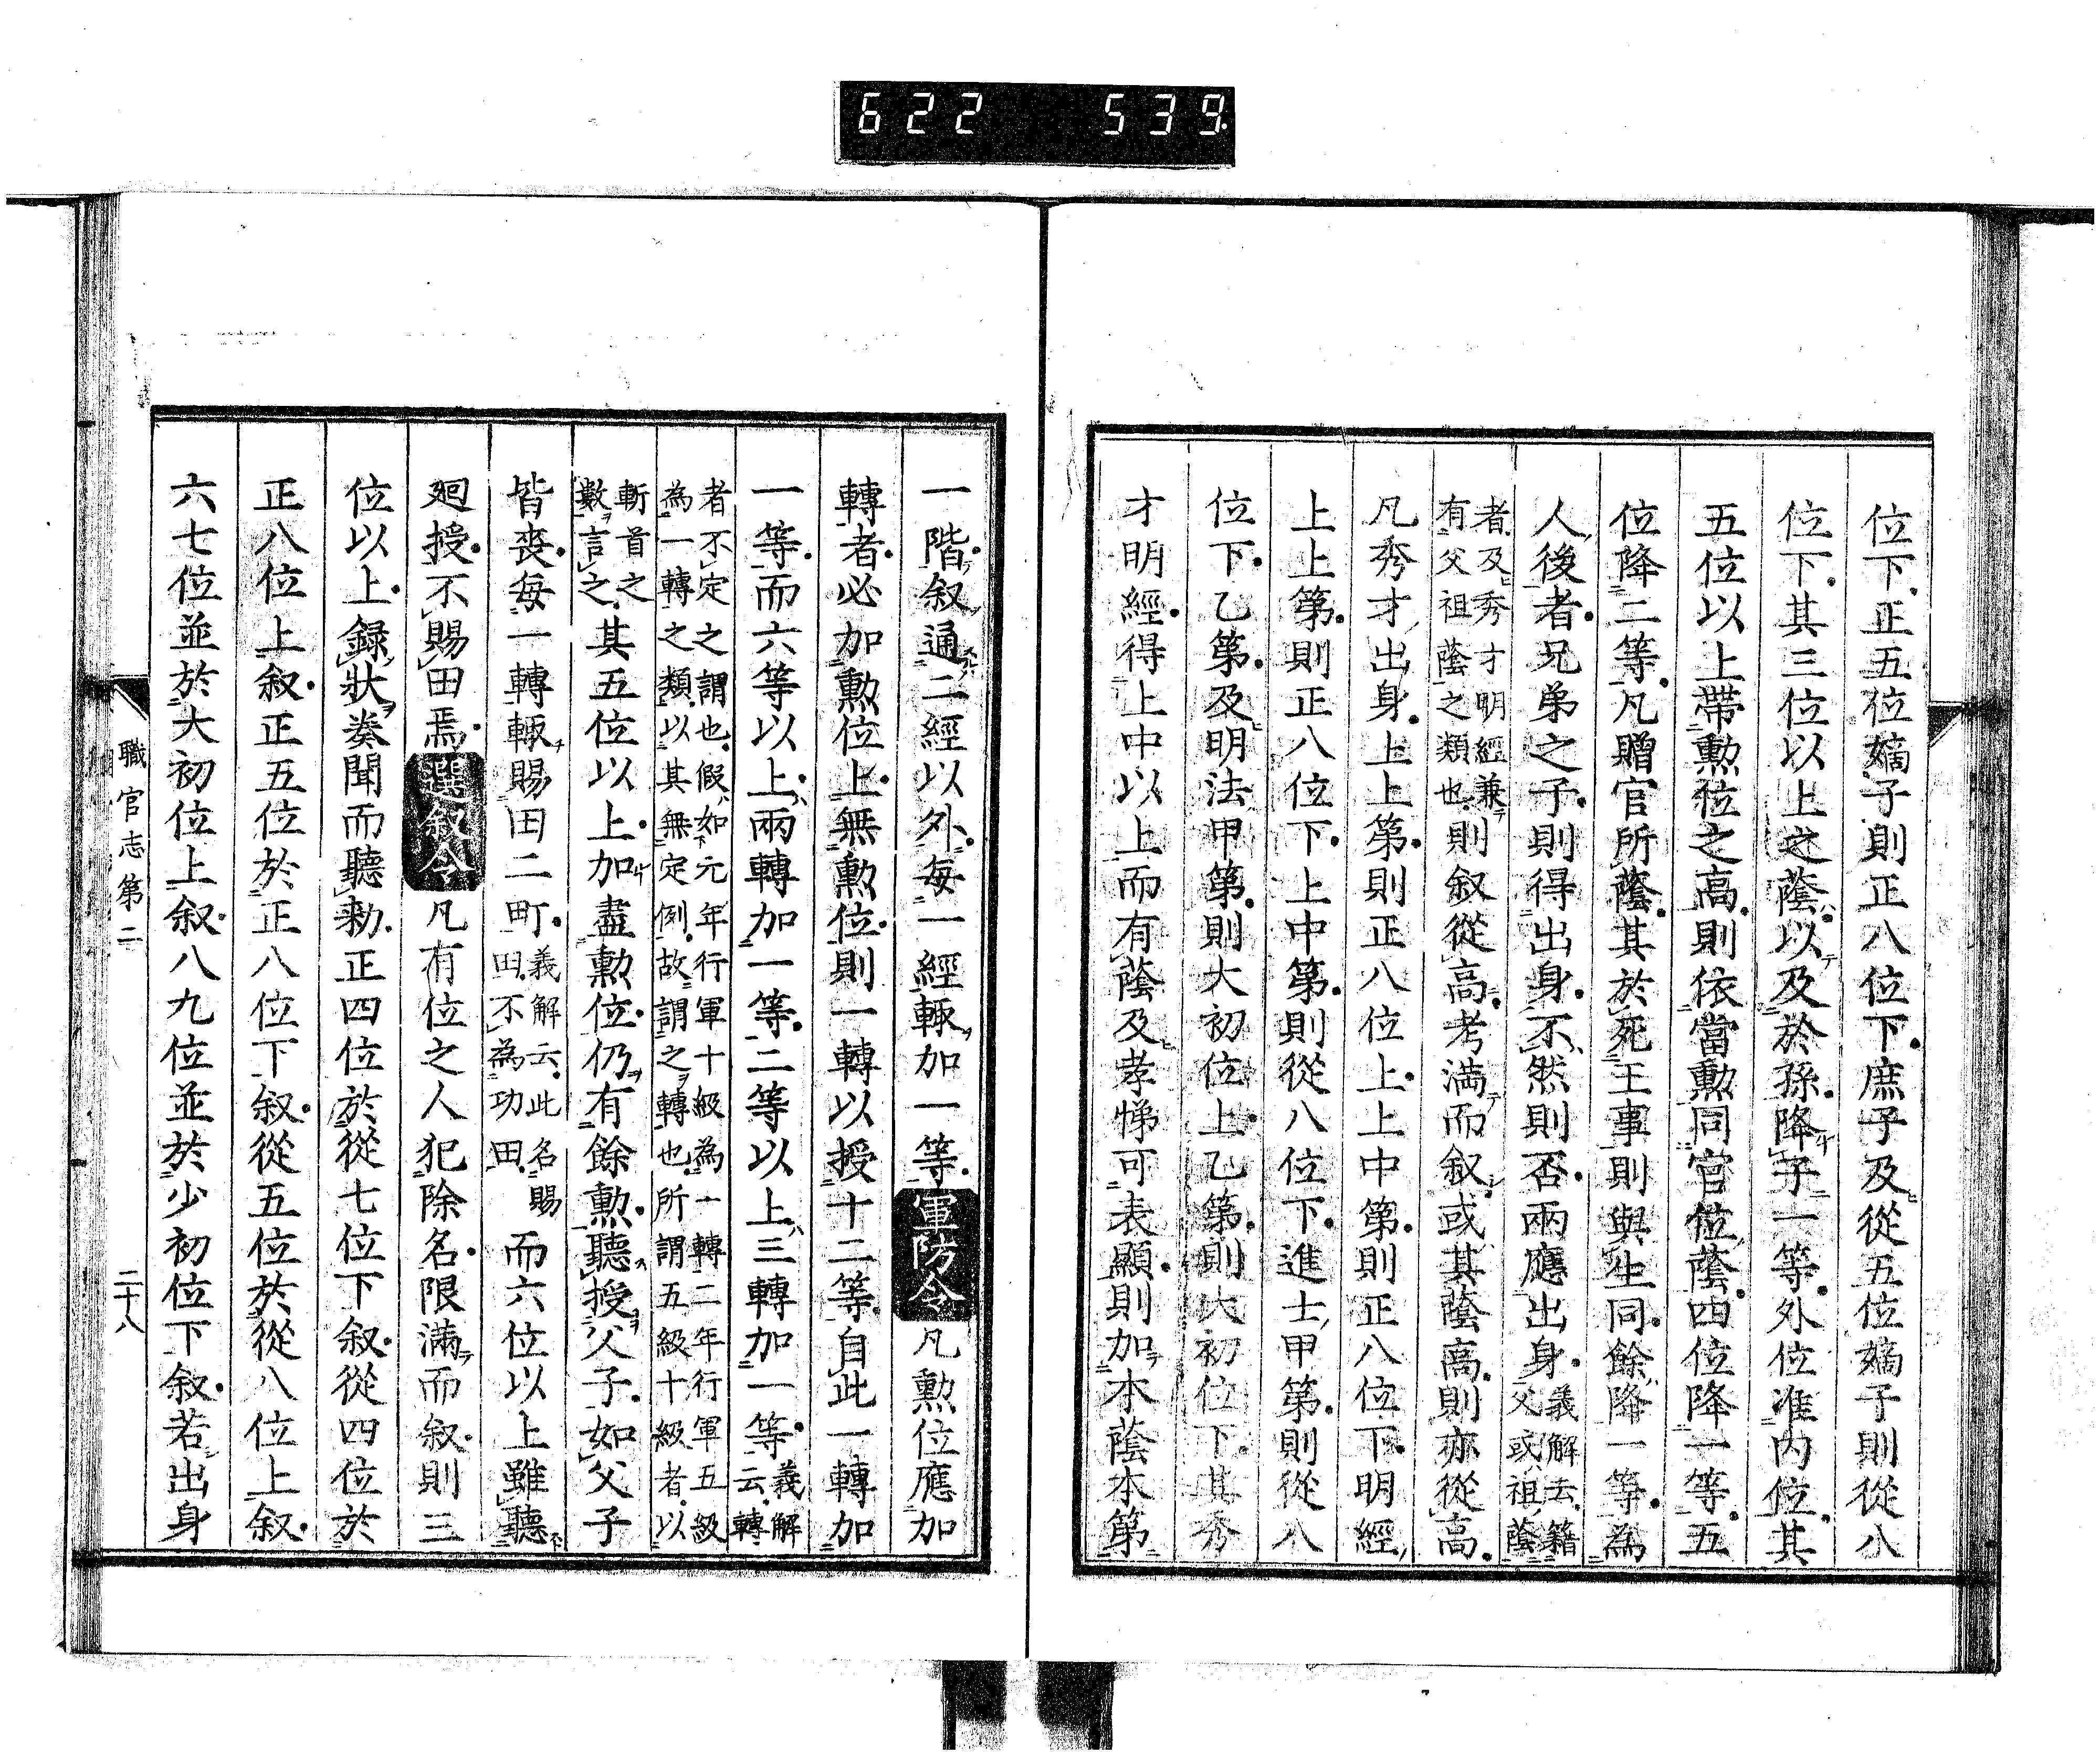 622 539
位下。正五位嫡子則正八位下。庶子及從五位嫡子則從八
位下。其三位以上之蔭。以及於孫。降子一等。外位准内位。其
五位以上帶勲位之高。則依當勲同官位蔭。四位降一等。五
位降二等。凡贈官所蔭。其於死王事則與生同。餘降一等。為
人後者。兄弟之子。則得出身。不然則否。兩應出身。義解云。籍父或祖蔭
者。及秀才明經兼有父祖蔭之類也。則叙從高。考満而叙。或其蔭高。則亦從高。
凡秀才出身。上上第。則正八位上。上中第。則正八位下。明經
上上第。則正八位下。上中第。則從八位下。進士甲第。則從八
位下。乙第。及明法甲第。則大初位上。乙第。則大初位下。其秀
才明經。得上中以上而有蔭及孝悌可表顯。則加本蔭本第
一階叙。通二經以外。每一經輙加一等。軍防令凡勲位應加
轉者。必加勲位上。無勲位。則一轉以授十二等。自此一轉加
一等。而六等以上。兩轉加一等。二等以上。三轉加一等。義解云。轉
者不定之謂也。假如元年行軍十級為一轉。二年行軍五級為一轉之類。以其無定例。故謂之轉也。所謂五級十級者。以
斬首之數言之。其五位以上。加盡勲位。仍有餘勲。聽授父子。如父子
皆喪。每一轉輙賜田二町。義解云。此名賜田。不為功田。而六位以上雖聽
廻授。不賜田焉。選叙令凡有位之人犯除名。限滿而叙。則三
位以上。録狀奏聞而聽勅。正四位於從七位下叙。從四位於
正八位上叙。正五位於正八位下叙。從五位於從八位上叙。
六七位並於大初位上叙。八九位並於少初位下叙。若出身
職官志第二
二十八